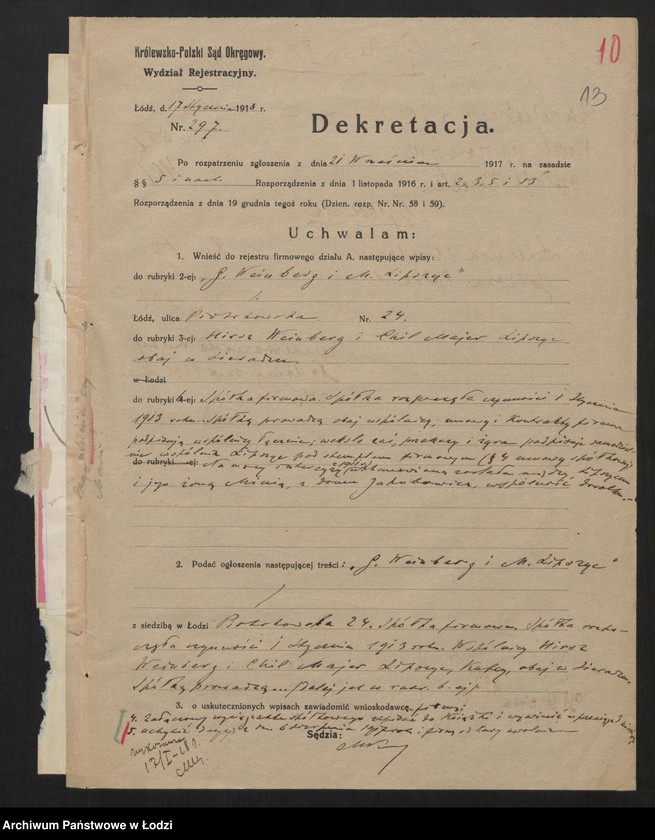 Królewsko-Polski Sąd Okręgowy.
Wydział Rejestracyjny.
10
13
Łódź, d. 17 Stycznia 1918 r.
Nr. 297.
Dekretacja.
Po rozpatrzeniu zgłoszenia z dnia 21 Września 1917 r. na zasadzie
§ § 5 i nast. Rozporządzenia z dnia 1 listopada 1916 r. i art. 2, 3, 5 i 13
Rozporządzenia z dnia 19 grudnia tegoż roku (Dzien. rozp. Nr. Nr. 58 i 59).
Uchwalam:
1. Wnieść do rejestru firmowego działu A. następujące wpisy:
do rubryki 2-ej: „G. Weinberg i M. Lipszyc"
Łódź, ulica Piotrkowska Nr. 24.
do rubryki 3-ej: Hirsz Weinberg i Chil Majer Lipszyc
obaj w Sieradzu
w Łodzi
do rubryki 6-ej: Spółka firmowa. Spółka rozpoczęła czynności 1 Stycznia
1913 roku. Spółkę prowadzą obaj wspólnicy, umowy i kontrakty firmowe
podpisują wspólnicy łącznie; weksle zaś, przekazy i żyra podpisuje
wspólnik Lipszyc pod stemplem firmowym (§ 4 umowy spółkowej)
do rubryki -ej: Na mocy między Lipszycem
i jego żoną z domu Jakubowicz, wspólność
2. Podać ogłoszenia następującej treści: „G. Weinberg i M. Lipszyc"
z siedzibą w Łodzi Piotrkowska 24. Spółka firmowa. Spółka rozpo-
częła czynności 1 Stycznia 1913 roku. Wspólnicy Hirsz
Weinberg i Chil Majer Lipszyc, kupcy, obaj w Sieradzu.
Spółkę prowadzą... /dalej jak w rubr. 6-ej/
3. o uskutecznionych wpisach zawiadomić wnioskodawcę
4.
5.
Sędzia:
wykonano
17/I-18 r.
Archiwum Państwowe w Łodzi